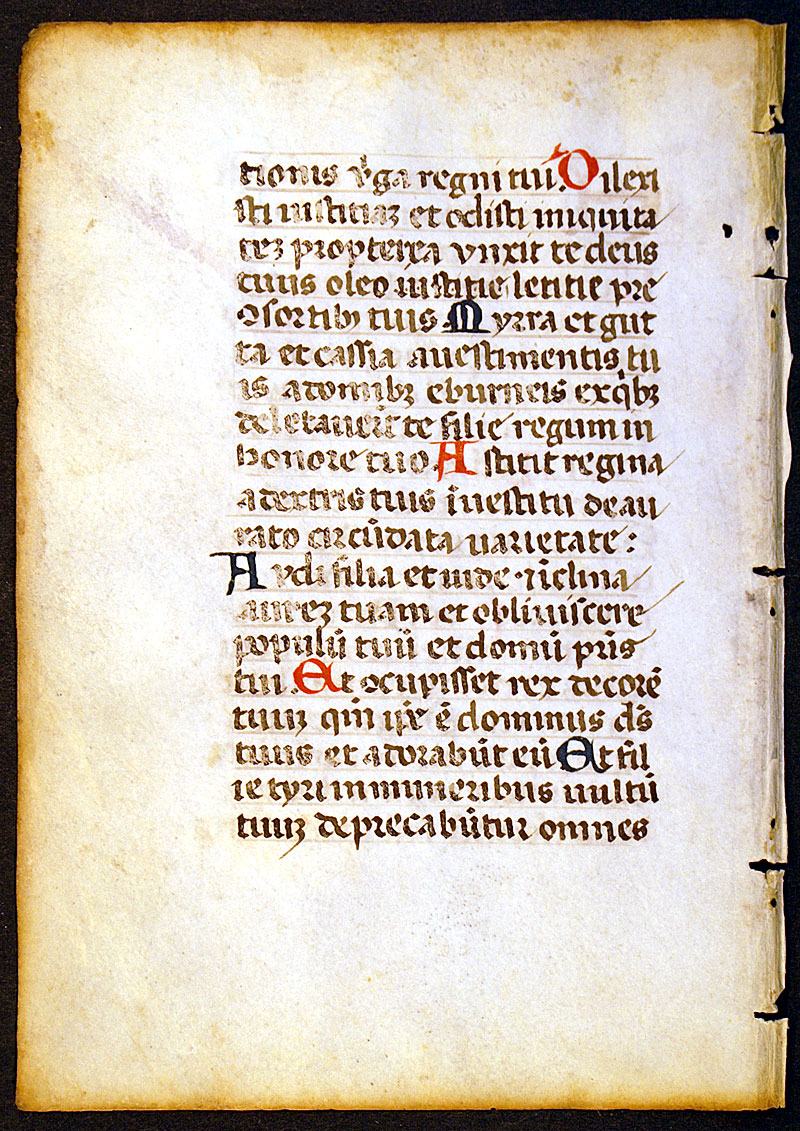 tionis v͛ga regni tui. Dilexi
sti iustitiaꝫ et odisti iniquita
teꝫ propterea vnxit te deus
tuus oleo iustitie letitie pre
ꝯsortibꝫ tuis Myrra et gut
ta et cassia auestimentis tu
is adomibꝫ eburneis exqͥbꝫ
deletauer̄t te filie regum in
honore tuo Astitit regina
adextris tuis īuestitu deau
rato circūdata uarietate:
Audi filia et uide ⁊īclina
aureꝫ tuam et obliuiscere
populū tuū et domū pr̄is
tui. Et ꝯcupisset rex decorē
tuuꝫ qm̄ ip̄e ē dominus ds̄
tuus et adorabūt eū Et fil
ie tyri inmuneribus uultū
tuuꝫ deprecabūtur omnes